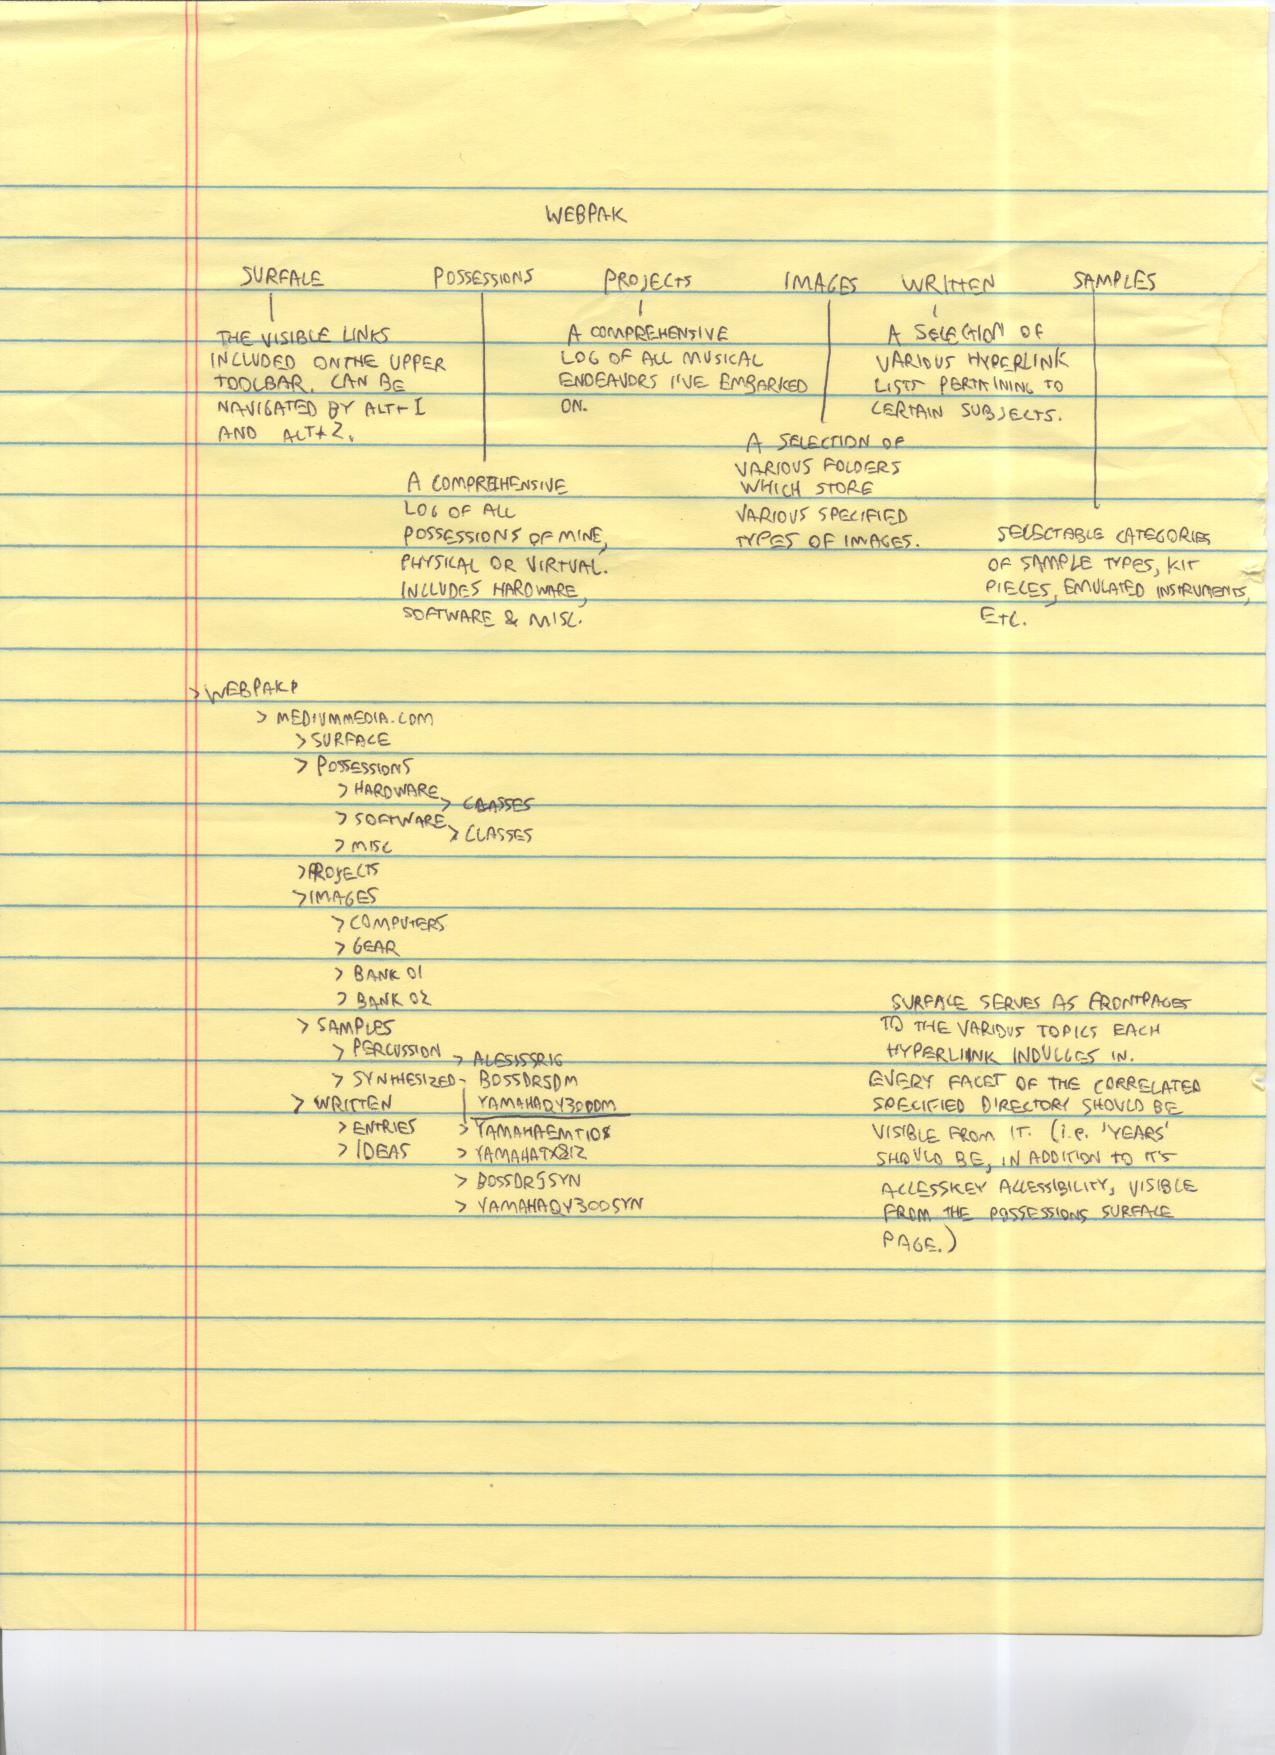 WEBPAK
SURFACE POSSESSIONS PROJECTS IMAGES WRITTEN SAMPLES
THE VISIBLE LINKS
INCLUDED ON THE UPPER
TOOLBAR. CAN BE
NAVIGATED BY ALT+1
AND ALT+2.
A COMPREHENSIVE
LOG OF ALL
POSSESSIONS OF MINE,
PHYSICAL OR VIRTUAL.
INCLUDES HARDWARE,
SOFTWARE & MISC.
A COMPREHENSIVE
LOG OF ALL MUSICAL
ENDEAVORS I'VE EMBARKED
ON.
A SELECTION OF
VARIOUS FOLDERS
WHICH STORE
VARIOUS SPECIFIED
TYPES OF IMAGES.
A SELECTION OF
VARIOUS HYPERLINK
LISTS PERTAINING TO
CERTAIN SUBJECTS.
SELECTABLE CATEGORIES
OF SAMPLE TYPES, KIT
PIECES, EMULATED INSTRUMENTS,
ETC.
> WEBPAK
> MEDIUMMEDIA.COM
> SURFACE
> POSSESSIONS
> HARDWARE
> CLASSES
> SOFTWARE
> CLASSES
> MISC
> PROJECTS
> IMAGES
> COMPUTERS
> GEAR
> BANK 01
> BANK 02
> SAMPLES
> PERCUSSION > ALESISSR16
> SYNTHESIZED - BOSSDR5DM
> WRITTEN YAMAHAQY300DM
> ENTRIES > YAMAHAEMT10S
> IDEAS > YAMAHATX81Z
> BOSSDR5SYN
> YAMAHAQY300SYN
SURFACE SERVES AS FRONTPAGES
TO THE VARIOUS TOPICS EACH
HYPERLINK INDULGES IN.
EVERY FACET OF THE CORRELATED
SPECIFIED DIRECTORY SHOULD BE
VISIBLE FROM IT. (i.e. 'YEARS'
SHOULD BE, IN ADDITION TO IT'S
ACCESSKEY ACCESSIBILITY, VISIBLE
FROM THE POSSESSIONS SURFACE
PAGE.)